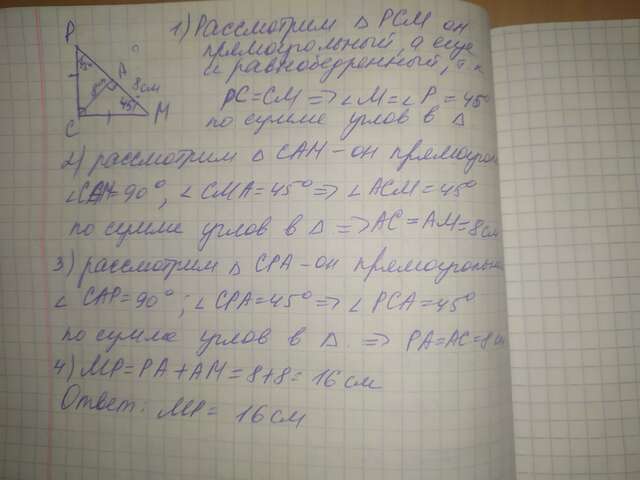 P
45°
A
8см
8см
45°
C
M
1) Рассмотрим △ PCM он
прямоугольный, а еще
и равнобедренный, т.к
PC=CM => ∠M=∠P=45°
по сумме углов в △
2) рассмотрим △ CAM – он прямоуго
∠CAM=90°, ∠CMA=45° => ∠ACM=45°
по сумме углов в △ => AC=AM=8см
3) рассмотрим △ CPA – он прямоугольны
∠CAP=90°; ∠CPA=45° => ∠PCA=45°
по сумме углов в △. => PA=AC=8см
4) MP=PA+AM=8+8=16см
Ответ: MP= 16см